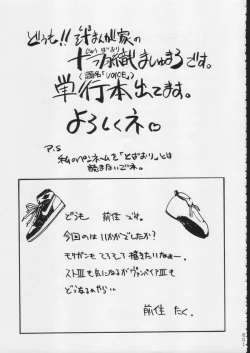 どうも!!
まんが家の
ましゅまろです。
(題名「VOICE」)
単行本出てます。
よろしくネ。
P.S
私のペンネームを「とばおり」とは
読まないでネ。
どうも 前住 です。
今回のはいかがでしたか?
モリガンも
描きたいなぁー。
ストⅢも気になるがヴァンパイアⅢも
どうなるのやら…
前住 たく.